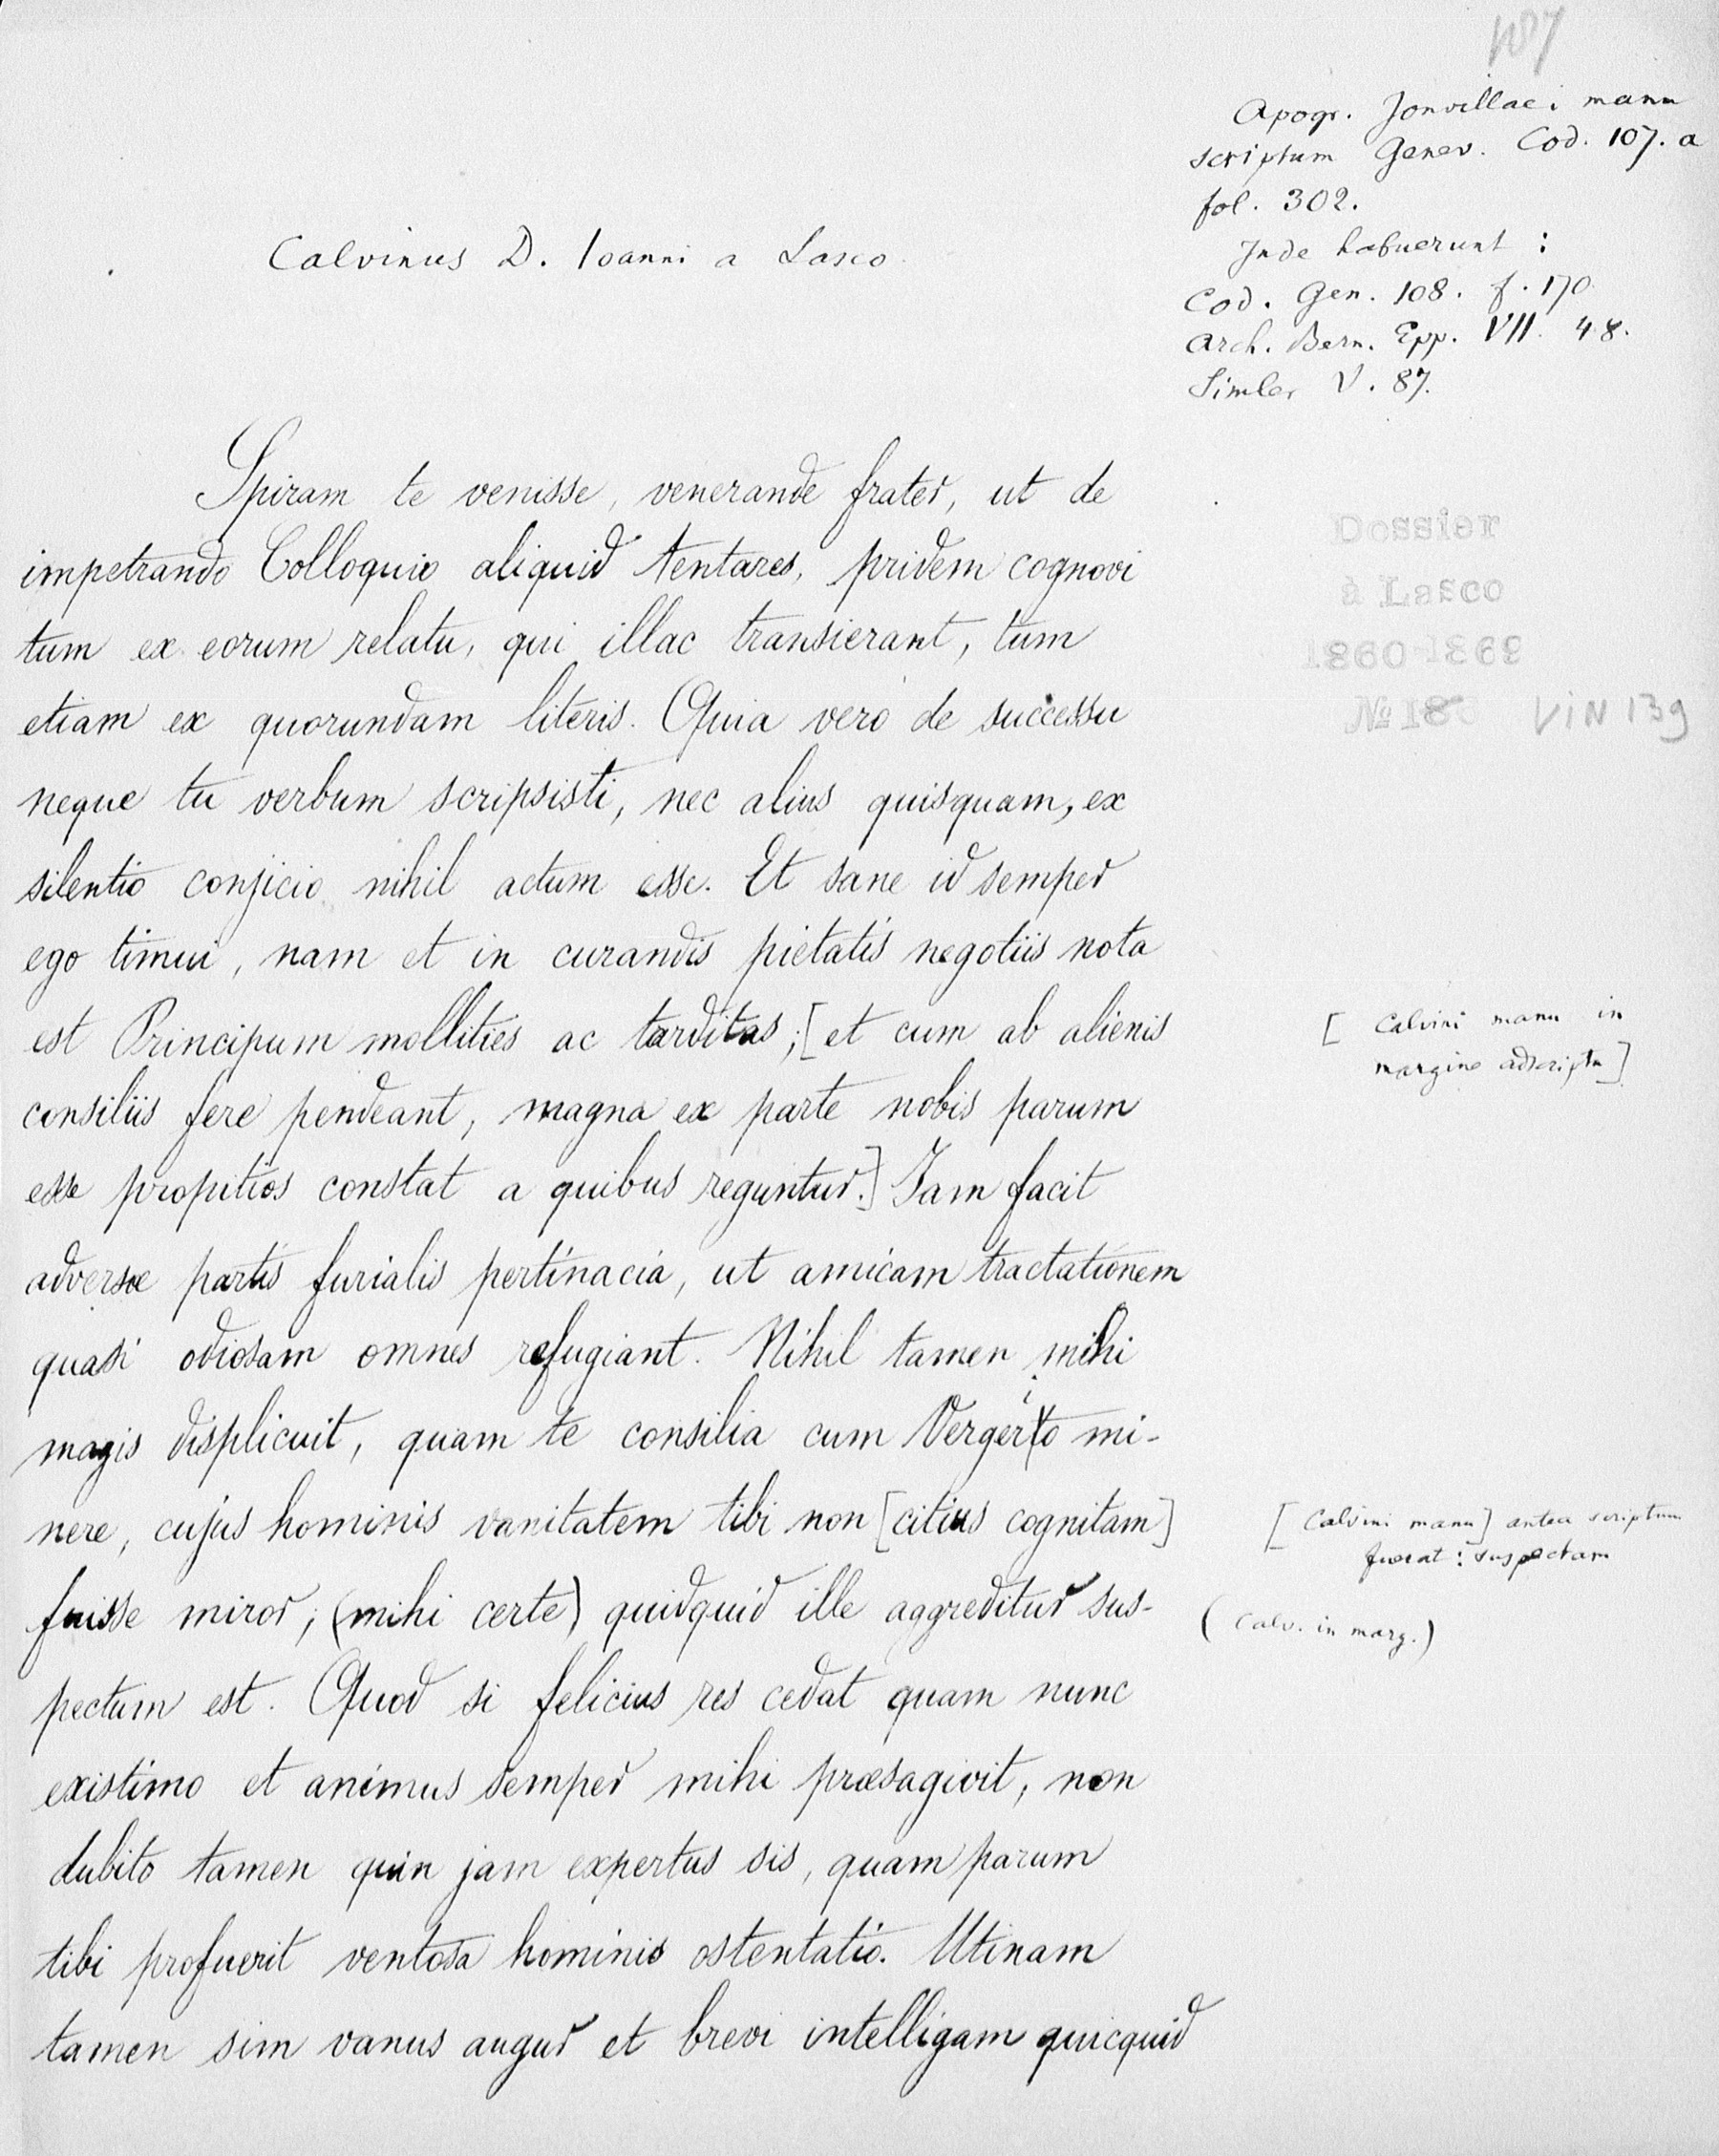 107
Apogr. Jonvillaei manu
scriptum Genev. Cod. 107. a
fol. 302.
Inde habuerunt :
Cod. Gen. 108. f. 170
Arch. Bern. Epp. VII. 48.
Simler V. 87.
Calvinus D. Ioanni a Lasco.
Spiram te venisse, venerande frater, ut de
impetrando Colloquio aliquid tentares, pridem cognovi
tum ex eorum relatu, qui illac transierant, tum
etiam ex quorundam literis. Quia vero de successu
neque tu verbum scripsisti, nec alius quisquam, ex
silentio conjicio nihil actum esse. Et sane id semper
ego timui, nam et in curandis pietatis negotiis nota
est Principum mollities ac tarditas; [et cum ab alienis
consiliis fere pendeant, magna ex parte nobis parum
esse propitios constat a quibus reguntur.] Jam facit
adversae partis furialis pertinacia, ut amicam tractationem
quasi odiosam omnes refugiant. Nihil tamen mihi
magis displicuit, quam te consilia cum Vergerio mi-
nere, cujus hominis vanitatem tibi non [citius cognitam]
fuisse miror; (mihi certe) quidquid ille aggreditur sus-
pectum est. Quod si felicius res cedat quam nunc
existimo et animus semper mihi praesagivit, non
dubito tamen quin jam expertus sis, quam parum
tibi profuerit ventosa hominis ostentatio. Utinam
tamen sim vanus augur et brevi intelligam quicquid
Dossier
à Lasco
1860-1869
№ 18 VIN 139
[ Calvini manu in
margine adscripta ]
[ Calvini manu ] antea scriptum
fuerat : suspectam
( Calv. in marg. )